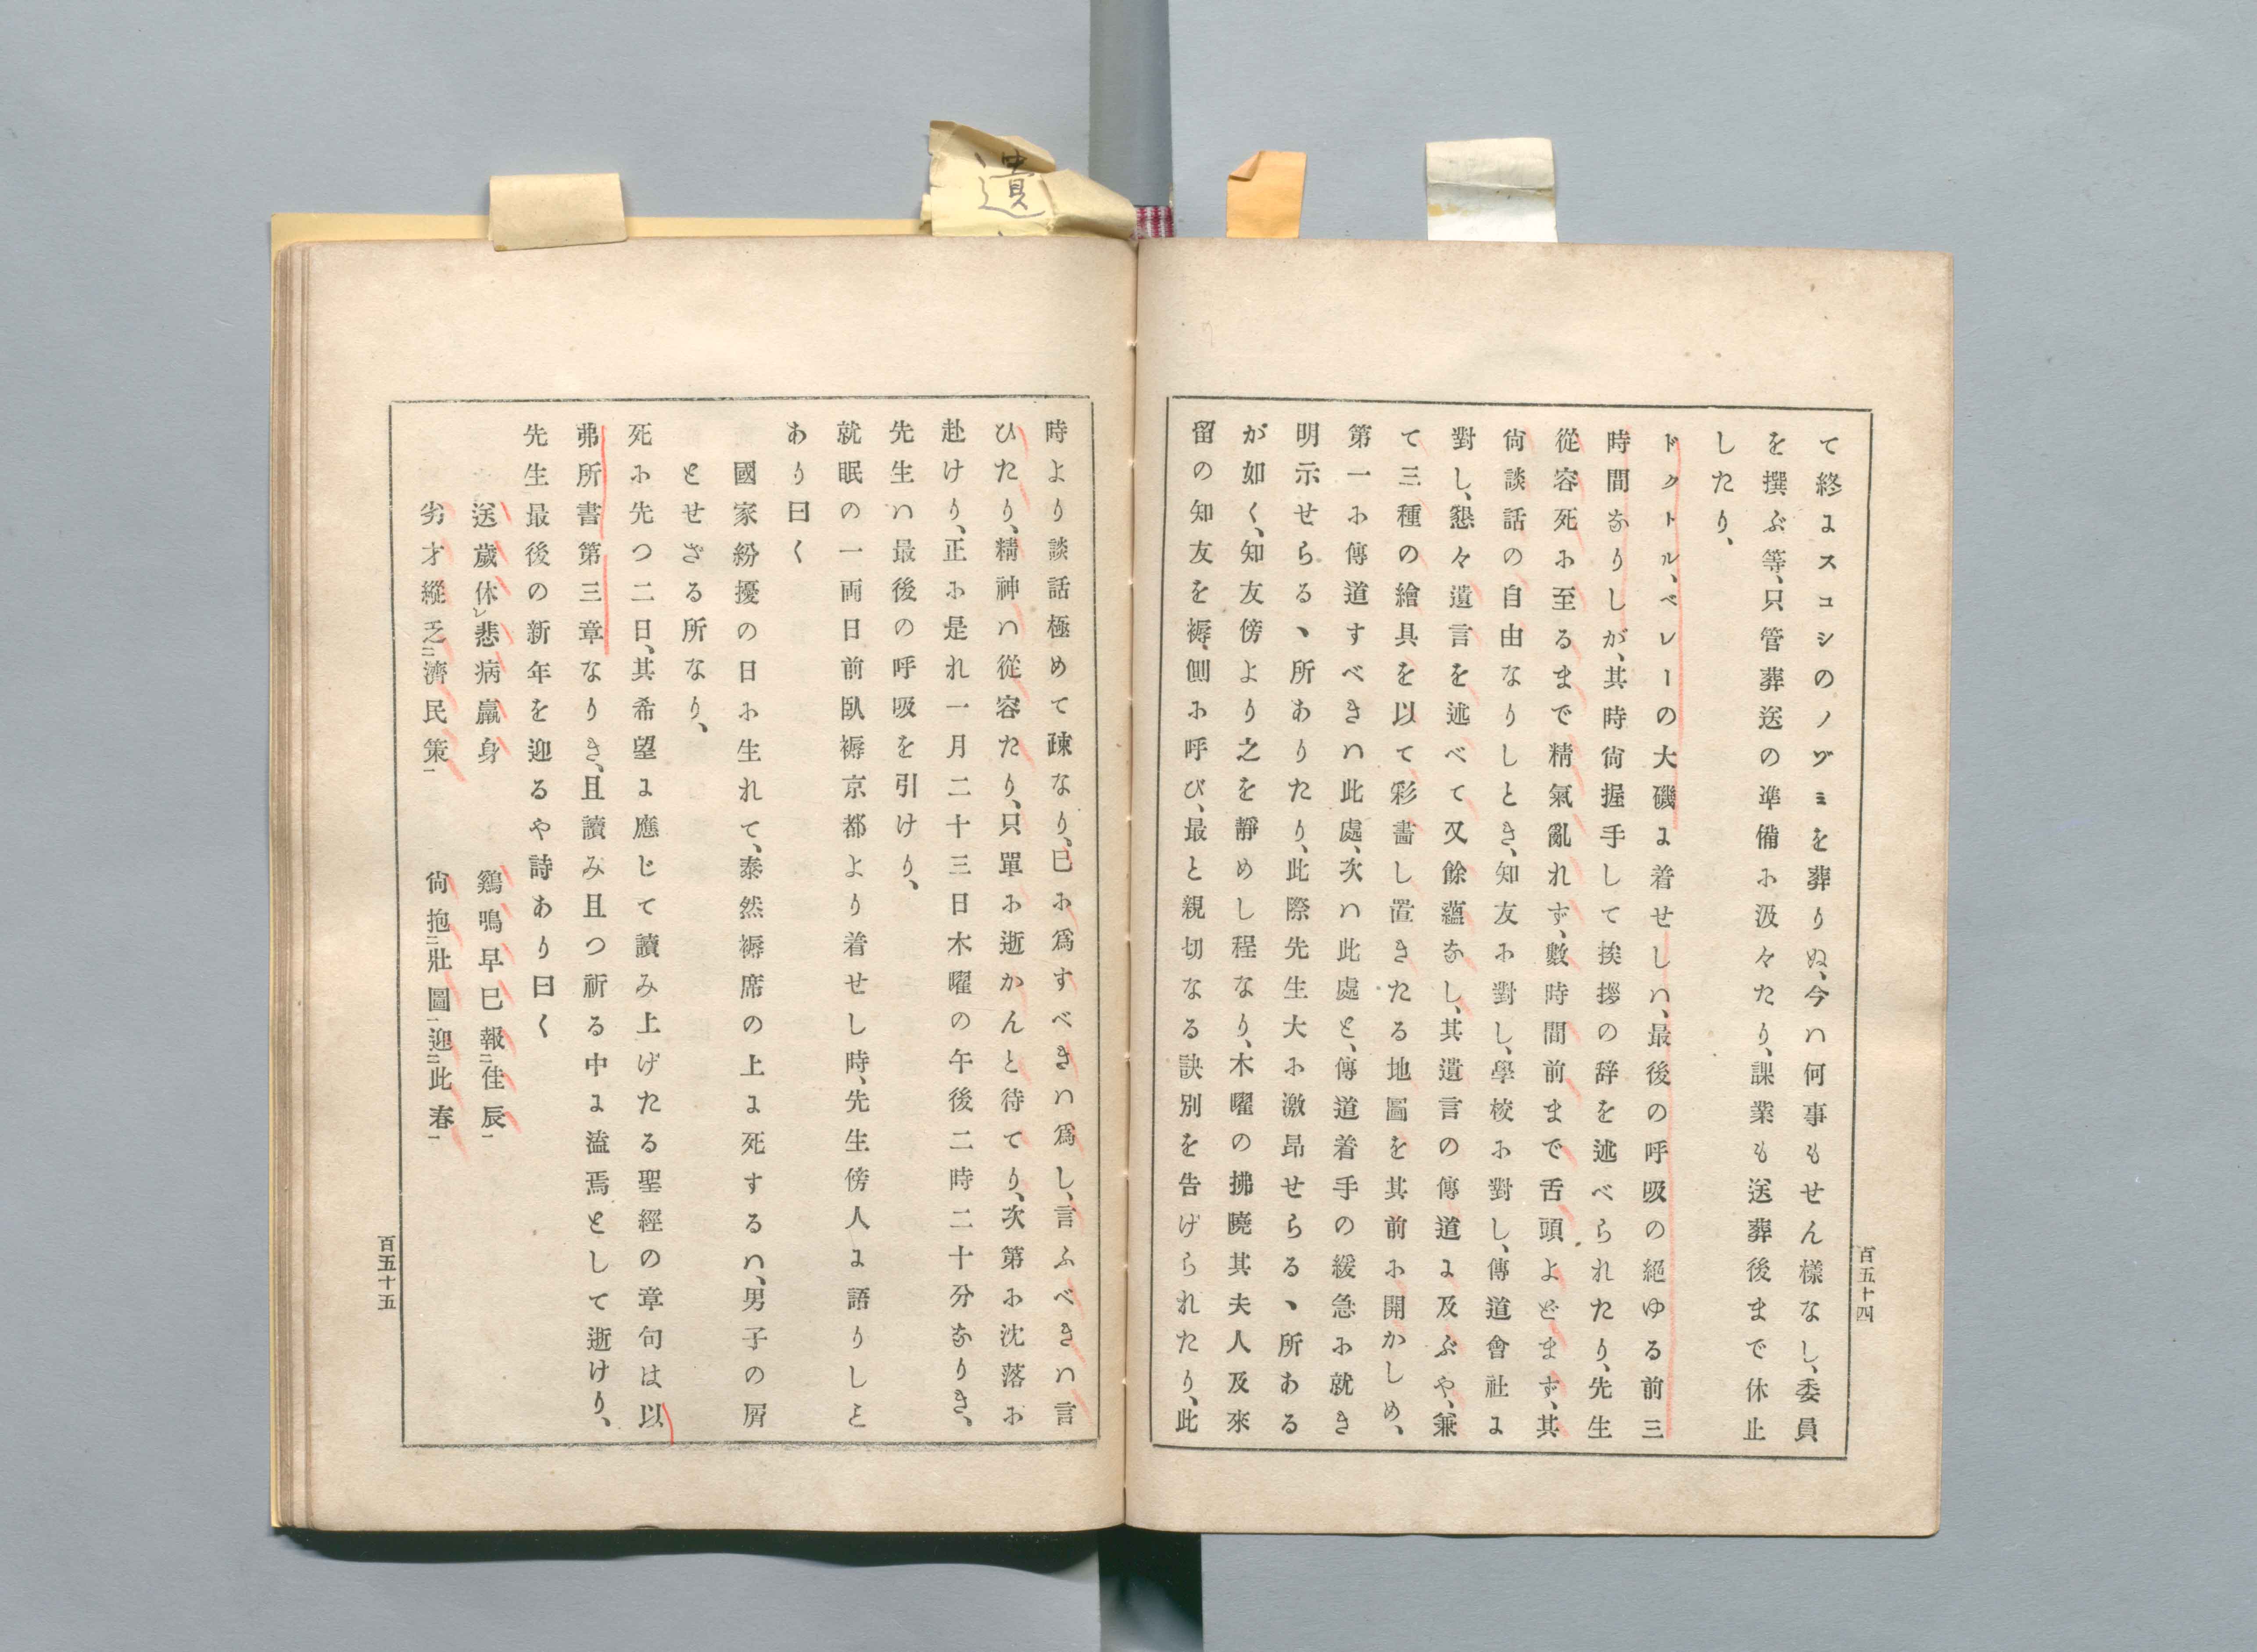 遺
て終にスコシのノゾミを葬りぬ、今ハ何事もせん樣なし、委員
を撰ぶ等、只管葬送の準備に汲々たり、課業も送葬後まで休止
したり、
ドクトル、ベレーの大磯に着せしハ、最後の呼吸の絕ゆる前三
時間なりしが、其時尙握手して挨拶の辞を述べられたり、先生
從容死に至るまで精氣亂れず、數時間前まで舌頭よどまず、其
尙談話の自由なりしとき、知友に對し、學校に對し、傳道會社に
對し、懇々遺言を述べて又餘蘊なし、其遺言の傳道に及ぶや、兼
て三種の繪具を以て彩畵し置きたる地圖を其前に開かしめ、
第一に傳道すべきハ此處、次ハ此處と、傳道着手の緩急に就き
明示せらるヽ所ありたり、此際先生大に激昂せらるヽ所ある
が如く、知友傍より之を靜めし程なり、木曜の拂曉其夫人及來
留の知友を褥側に呼び、最と親切なる訣別を告げられたり、此
百五十四
時より談話極めて疎なり、已に爲すべきハ爲し、言ふべきハ言
ひたり、精神ハ從容たり、只單に逝かんと待てり、次第に沈落に
赴けり、正に是れ一月二十三日木曜の午後二時二十分なりき、
先生ハ最後の呼吸を引けり、
就眠の一両日前臥褥京都より着せし時、先生傍人に語りしと
あり曰く
國家紛擾の日に生れて、泰然褥席の上に死するハ、男子の屑
とせざる所なり、
死に先つ二日、其希望に應じて讀み上げたる聖經の章句は以
弗所書第三章なりき、且讀み且つ祈る中に溘焉として逝けり、
先生最後の新年を迎るや詩あり曰く
送歲休レ悲病羸身　鷄鳴早已報二佳辰一
劣才縱乏二濟民策一　尙抱二壯圖一迎二此春一
百五十五